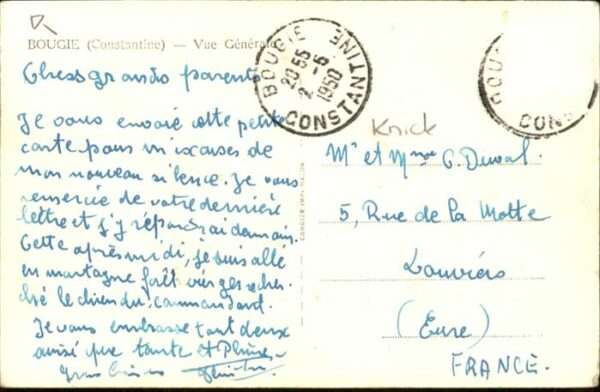 BOUGIE (Constantine) — Vue Générale
Chers grands parents
Je vous envoie cette petite
carte pour m'excuser de
mon nouveau silence. Je vous
remercie de votre dernière
lettre et j'y répondrai demain.
Cette après midi, je suis allé
en montagne
le chien du commandant.
Je vous embrasse tout deux
que tante et
BOUGIE
20 55
2 - 6
1950
CONSTANTINE
BOU
CONS
Knick
Mr et Mme G. Duval.
5, Rue de la Motte
Louviers
(Eure)
FRANCE.